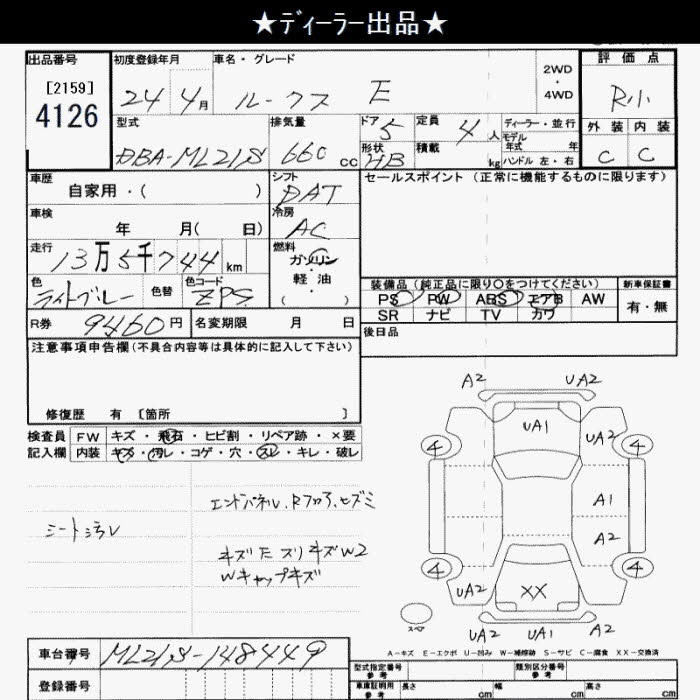 ★ディーラー出品★
出品番号 初度登録年月 車名・グレード 評価点
[2159] 24年 4月 ルークス E 2WD・4WD R小
4126
型式 排気量 ドア 5 定員 4人 ディーラー・並行 外装 内装
モデル年式 年
DBA-ML21S 660cc 形状 HB 積載 kg ハンドル 左・右 C C
車歴 シフト セールスポイント (正常に機能するものに限ります)
自家用・( ) DAT
車検 冷房
年 月( 日) AC
走行 燃料
13万5千744km ガソリン
軽油
( )
色 色替 色コード 装備品 (純正品に限り○をつけてください) 新車保証書
ライトブルー ZPS PS PW ABS エアB AW 有・無
SR ナビ TV カワ
R券 9460円 名変期限 月 日 後日品
注意事項申告欄(不具合内容等は具体的に記入して下さい)
修復歴 有 [箇所 ]
検査員 FW キズ・飛石・ヒビ割・リペア跡・×要
記入欄 内装 キズ・汚レ・コゲ・穴・スレ・キレ・破レ
シート汚レ
エンドパネル、Rフロア、ヒズミ
キズ 大 スリキズ W2
Wキャップキズ
A2 UA2
UA1
4 UA2 4
A1
A2
4 4
UA2 XX
スペア
UA2 UA1 A2
A-キズ E-エクボ U-凹み W-補修跡 S-サビ C-腐食 XX-交換済
車台番号 ML21S-148449
登録番号
型式指定番号 参考 類別区分番号 参考
車庫証明用 参考 長さ cm 幅 cm 高さ cm